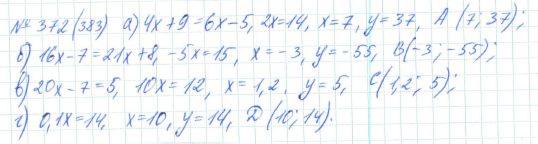 № 372 (383) а) 4x+9=6x-5, 2x=14, x=7, y=37, A (7; 37);
б) 16x-7=21x+8, -5x=15, x=-3, y=-55, B(-3; -55);
в) 20x-7=5, 10x=12, x=1,2, y=5, C(1,2; 5);
г) 0,1x=14, x=10, y=14, D (10; 14).